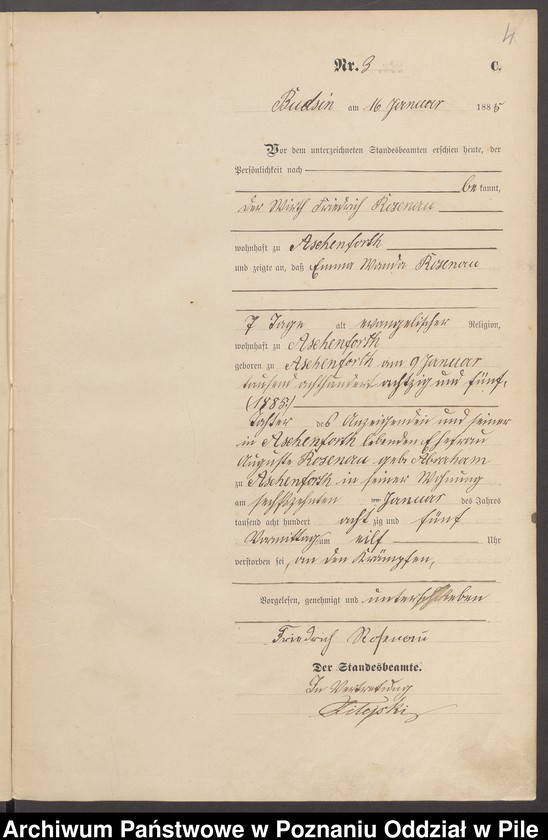 4
Nr. 3 C.
Budsin am 16 Januar 1885
Vor dem unterzeichneten Standesbeamten erschien heute, der
Persönlichkeit nach
be kannt,
der Wirth Friedrich Rosenau
wohnhaft zu Aschenforth
und zeigte an, daß Emma Wanda Rosenau
7 Tage alt evangelischer Religion,
wohnhaft zu Aschenforth
geboren zu Aschenforth am 9 Januar
tausend achthundert achtzig und fünf,
(1885)
Tochter des Anzeigenden und seiner
in Aschenforth lebenden Ehefrau
Auguste Rosenau geb. Abraham
zu Aschenforth in seiner Wohnung
am sechszehnten Januar des Jahres
tausend acht hundert acht zig und fünf
Vormittags um eilf Uhr
verstorben sei, an den Krämpfen,
Vorgelesen, genehmigt und unterschrieben
Friedrich Rosenau
Der Standesbeamte.
In Vertretung
Archiwum Państwowe w Poznaniu Oddział w Pile